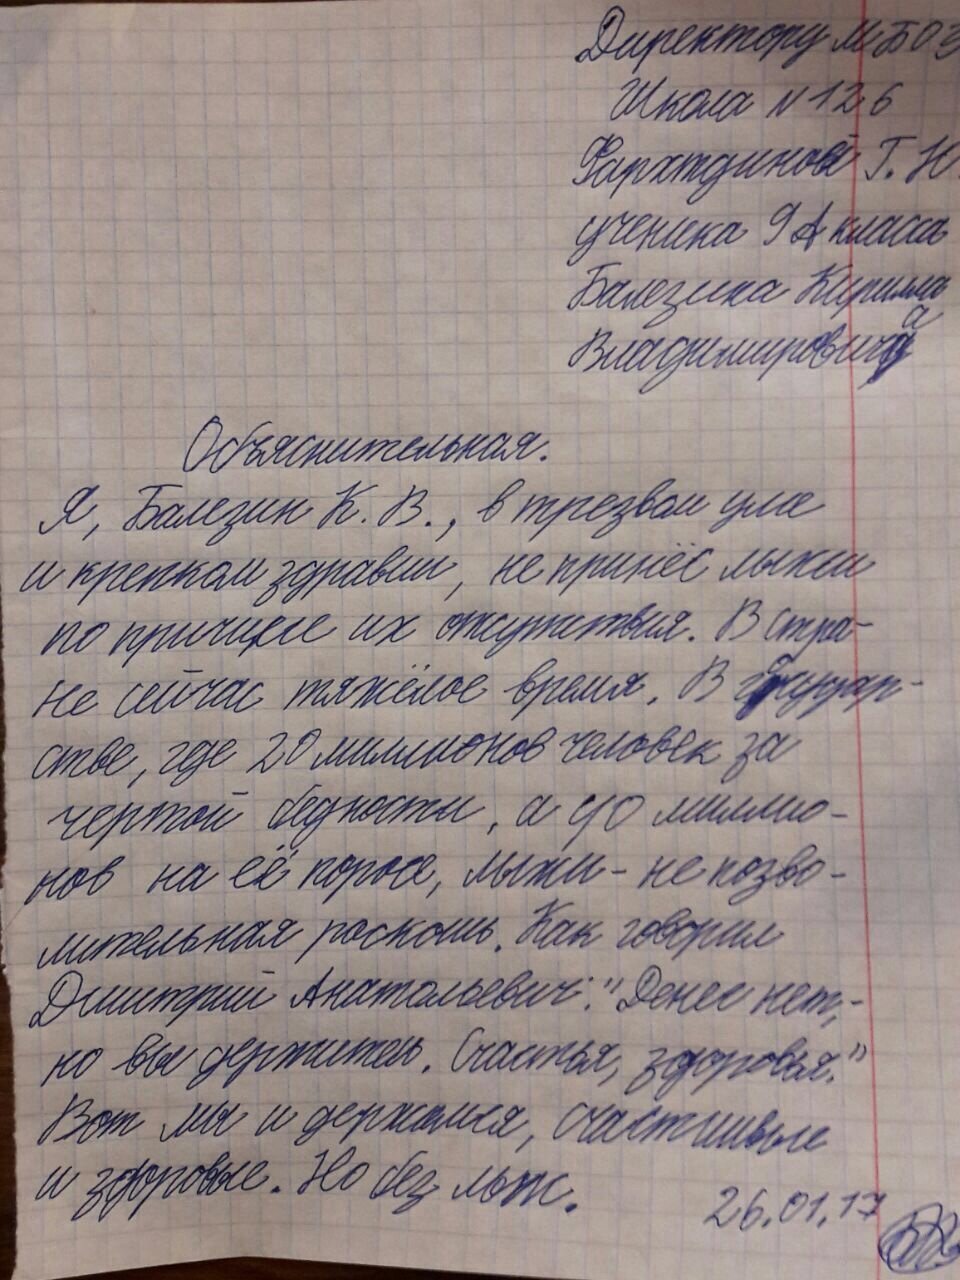 Директору МБОЭ
Школа N 126
Фархтдиновой Г. Ю.
ученика 9 А класса
Балезина Кирилла
Владимировича
Объяснительная.
Я, Балезин К. В., в трезвом уме
и крепком здравии, не принёс лыжи
по причине их отсутствия. В стра-
не сейчас тяжёлое время. В государ-
стве, где 20 миллионов человек за
чертой бедности, а 40 миллио-
нов на её пороге, лыжи - не позво-
лительная роскошь. Как говорил
Дмитрий Анатольевич: "Денег нет,-
но вы держитесь. Счастья, здоровья."
Вот мы и держимся, счастливые
и здоровые. Но без лыж.
26.01.17